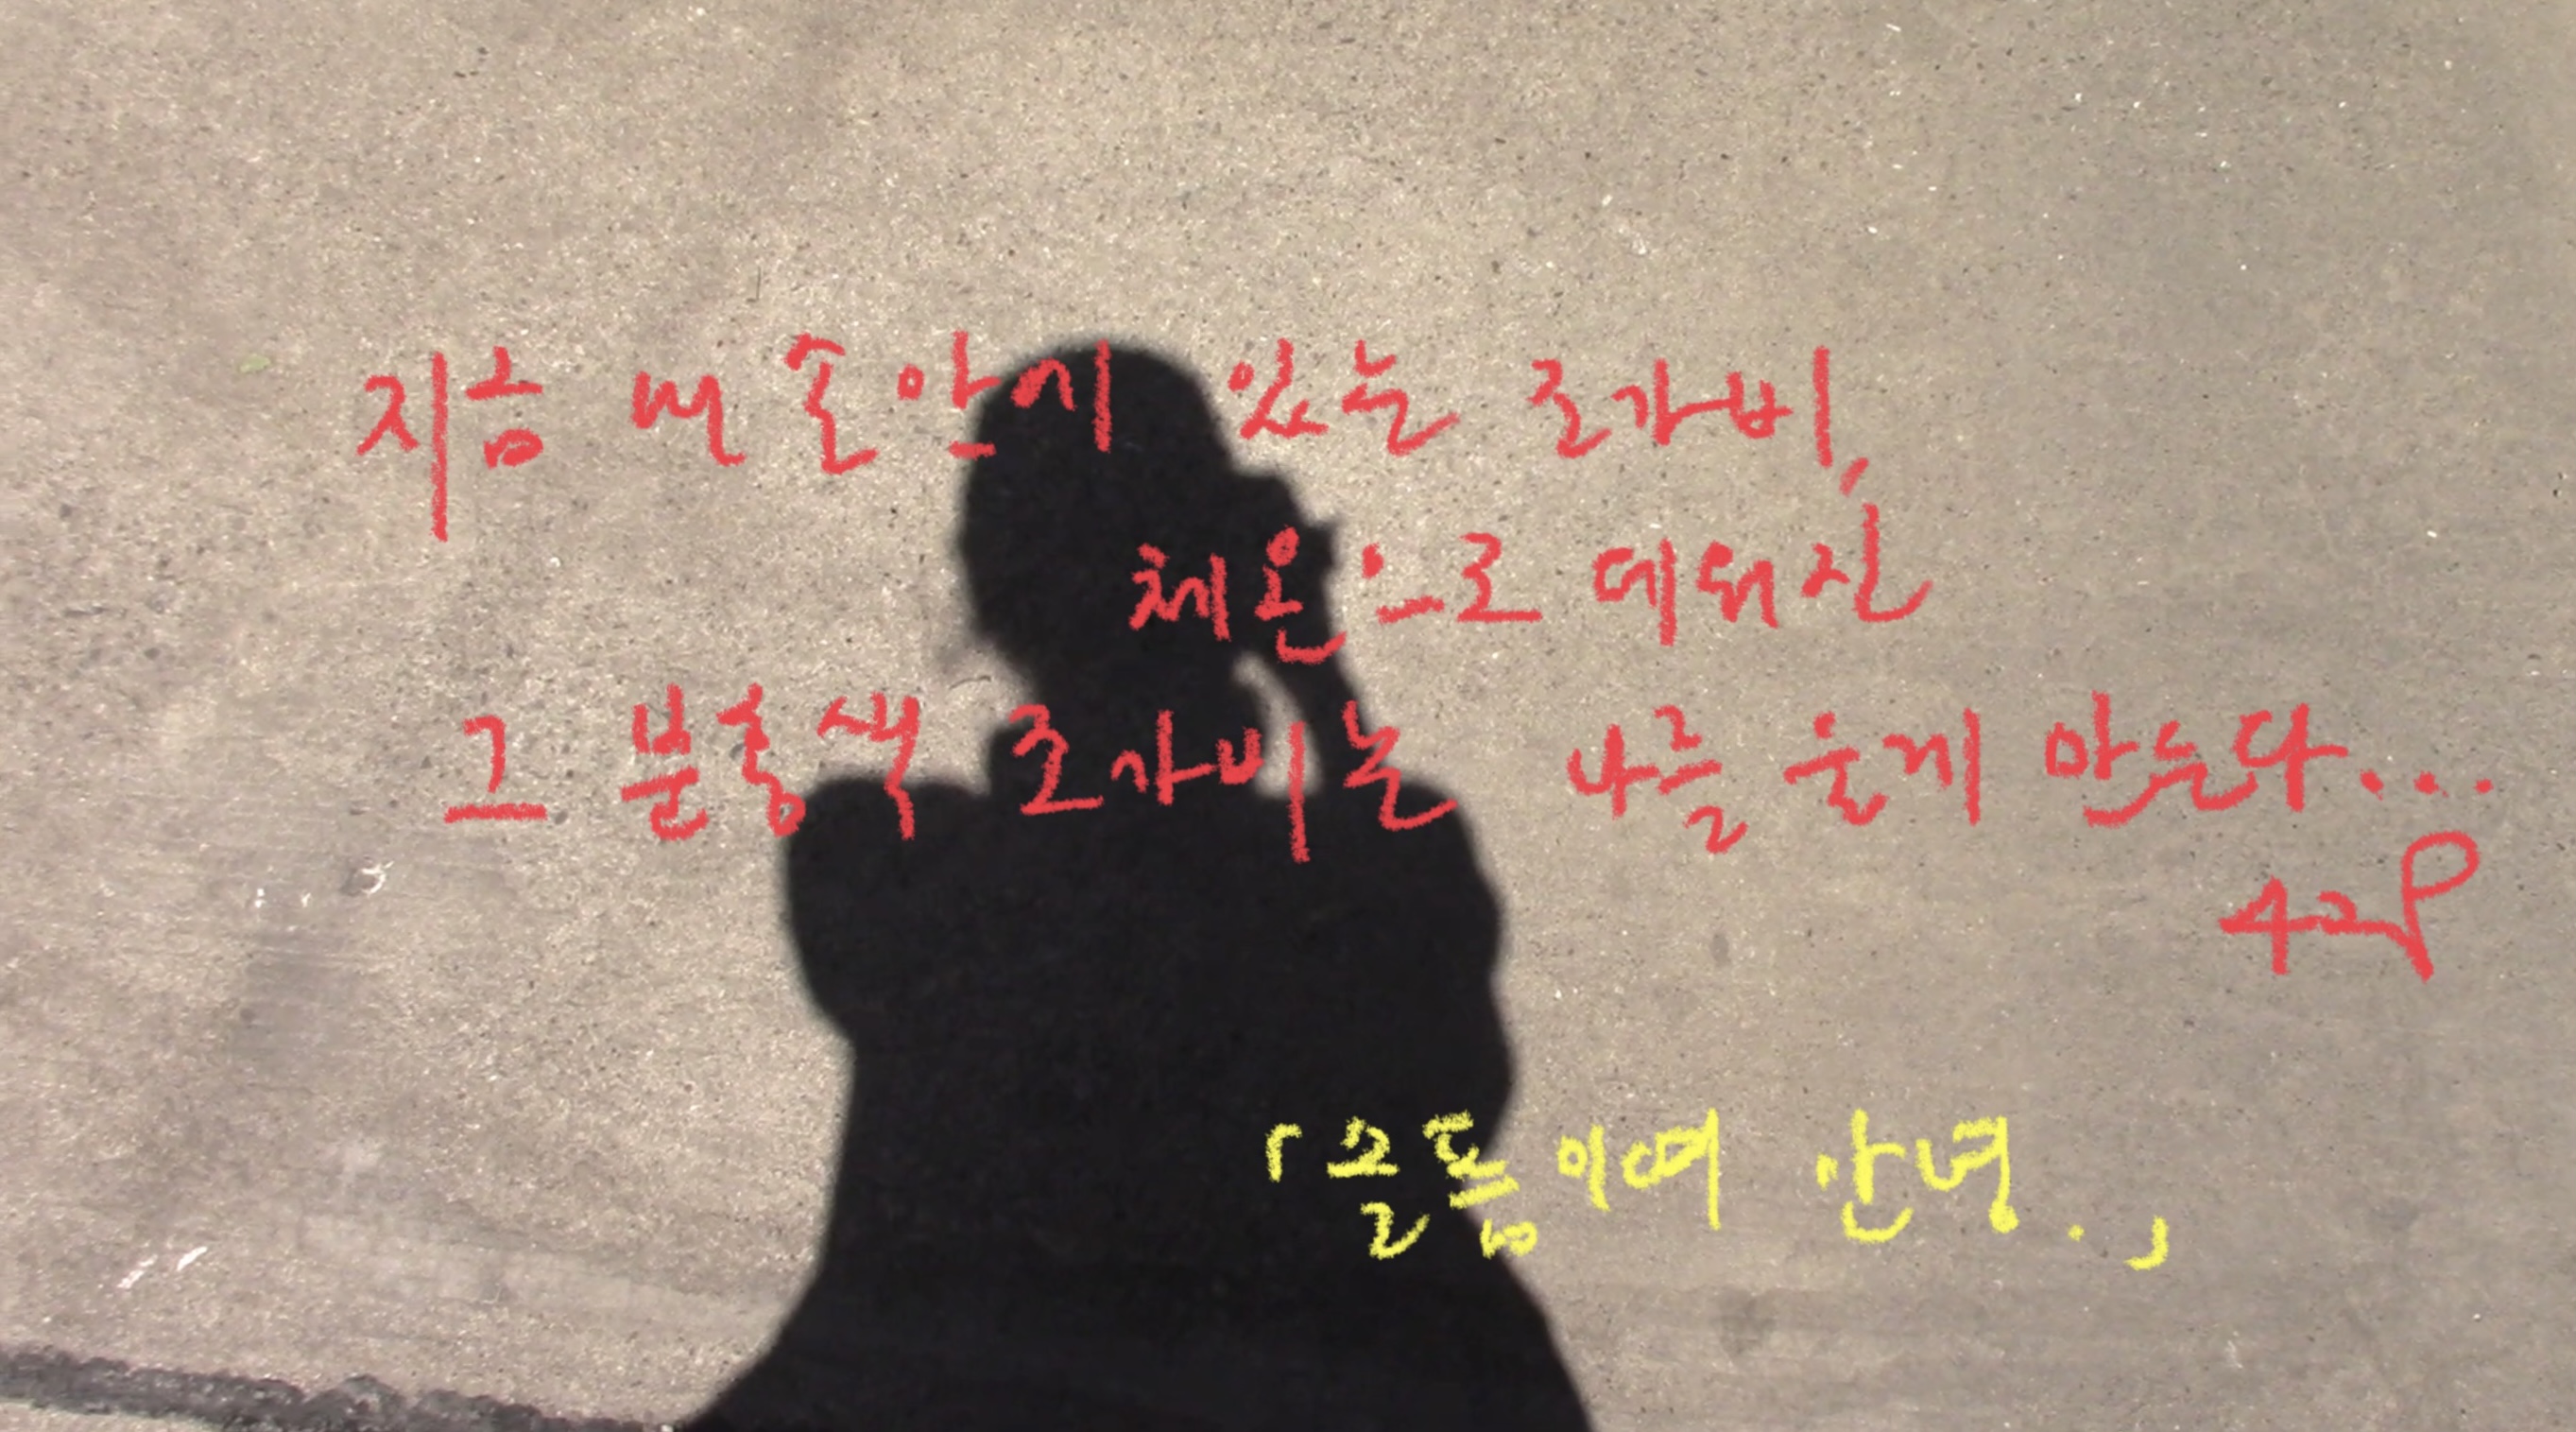 지금 내 손안에 있는 조가비,
체온으로 데워진
그 분홍색 조가비는 나를 울게 만든다...
42p
「슬픔이여 안녕.」